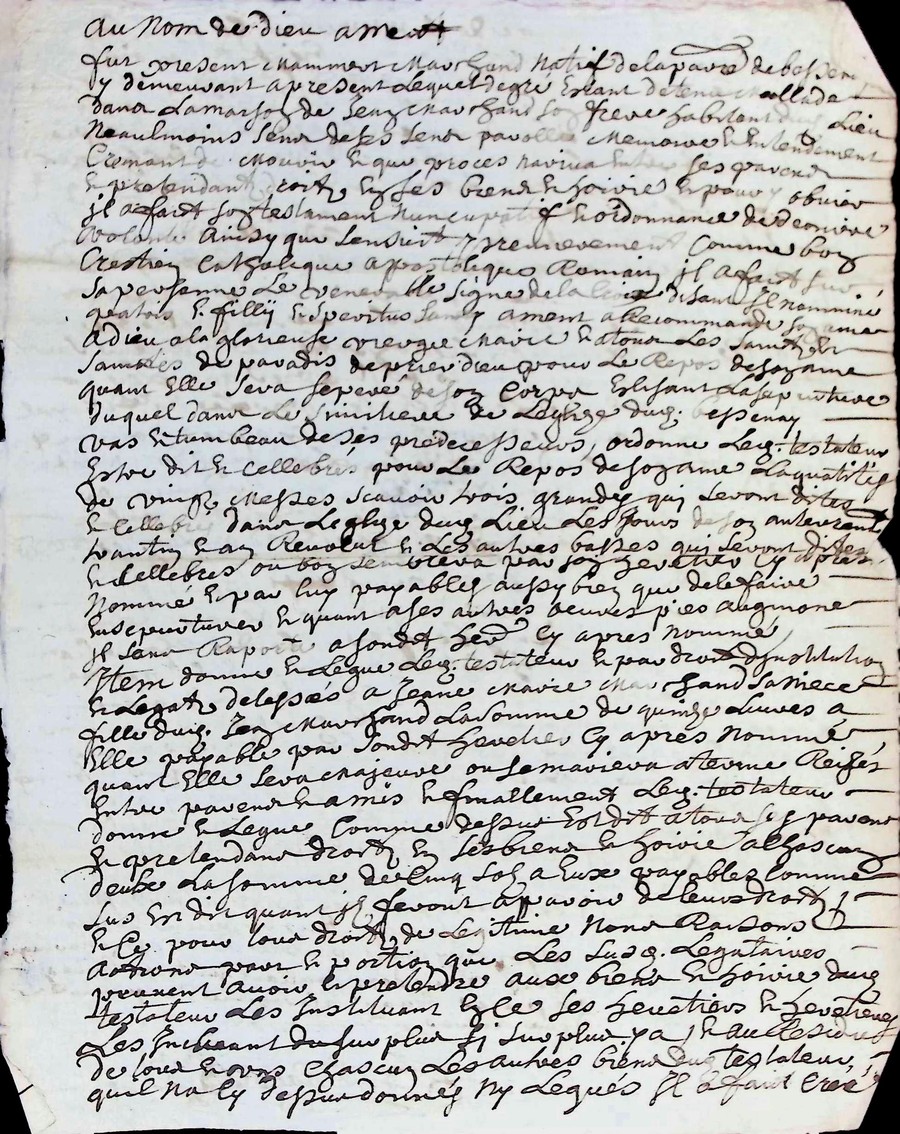 au Nom de dieu amen
fut present Mammert Marchand Natif de la paroisse de bessenay
y demeurant apresent Lequel de gré Estant detenu Mallade
dans La maison de Jean Marchand son frere habitant dud. Lieu
Neaulmoins Sens de ses Sens parolle Memoire et Entendement
Cremant de Mourir et que proces naviva entre ses parens
et pretendant droit, En ses biens et hoirie et pour y obvier
jl a faict son testament Nuncupatif et ordonnance de derniere
volonte Ainsy que Sensuict premierement Comme bon
Crestien Catholique apostolique Romain jl a faict sur
sa personne Le venerable signe de la croix disant Jn nomine
patris et fillij et speritus Santy ament a Recommandé son ame
a dieu a la glorieuse vierge Marie et a tous Les Saintz et
Sainctes de paradis de prier dieu pour Le Repos de son ame
quant Elle sera seperé de son Corps Eslisant La sepulture
duquel dans Le Simitiere de Leglize dud. bessenay
vas et tumbeau de ses predecesseurs, ordonne Led. testateur
Estre dit et Cellebrés pour Le Repos de son ame La quantité
de vingt Messes scavoir trois grandes qui seront dites
et Cellebrés dans Leglize dud. Lieu Les Jours de son anterement
trantin et an Revolut et Les autres basses qui seront dites
et Cellebres ou bon semblera par son heretier Cy apres
Nommé et par luy payables aussy bien que de le faire
Ensepulturer et quant a ses autres oeuvres pies augmone
jl san Raporte a sondt her. Cy apres Nommé
Jtem donne et Legue Led. testateur et par droit djnstitution
et Legatz delesses a Jeane Marie Marchand sa Niece
fille dud. Jean Marchand La somme de quinze Livres a
Elle payable par sondt heretier Cy apres Nommé
quant Elle sera Majeure ou se mariera a terme Reiglés
Entre parens et amis et finallement Led. testateur
donne et Legue Comme dessus Est dit a tous ses parens
et pretendans droitz En ses biens et hoirie a Chascun
deulx La somme de Cinq solz a Eux payables Comme
sus Est dit quant jlz feront aparoir de leurs droitz
et Ce pour tous droitz de Legitime Noms Raisons
actions part et portion que Les susd. Legataires
peuvent avoir et pretendre aux biens et hoirie dud.
testateur Les Jnstituant En Ce ses heretiers et heretieres
Les Excluant du surplus sj surplus y a, et au Residu
de tous et uns Chascun Les autres biens dud. testateur
quil Na Cy dessus donnés Ny Legués Jl a faict Créé